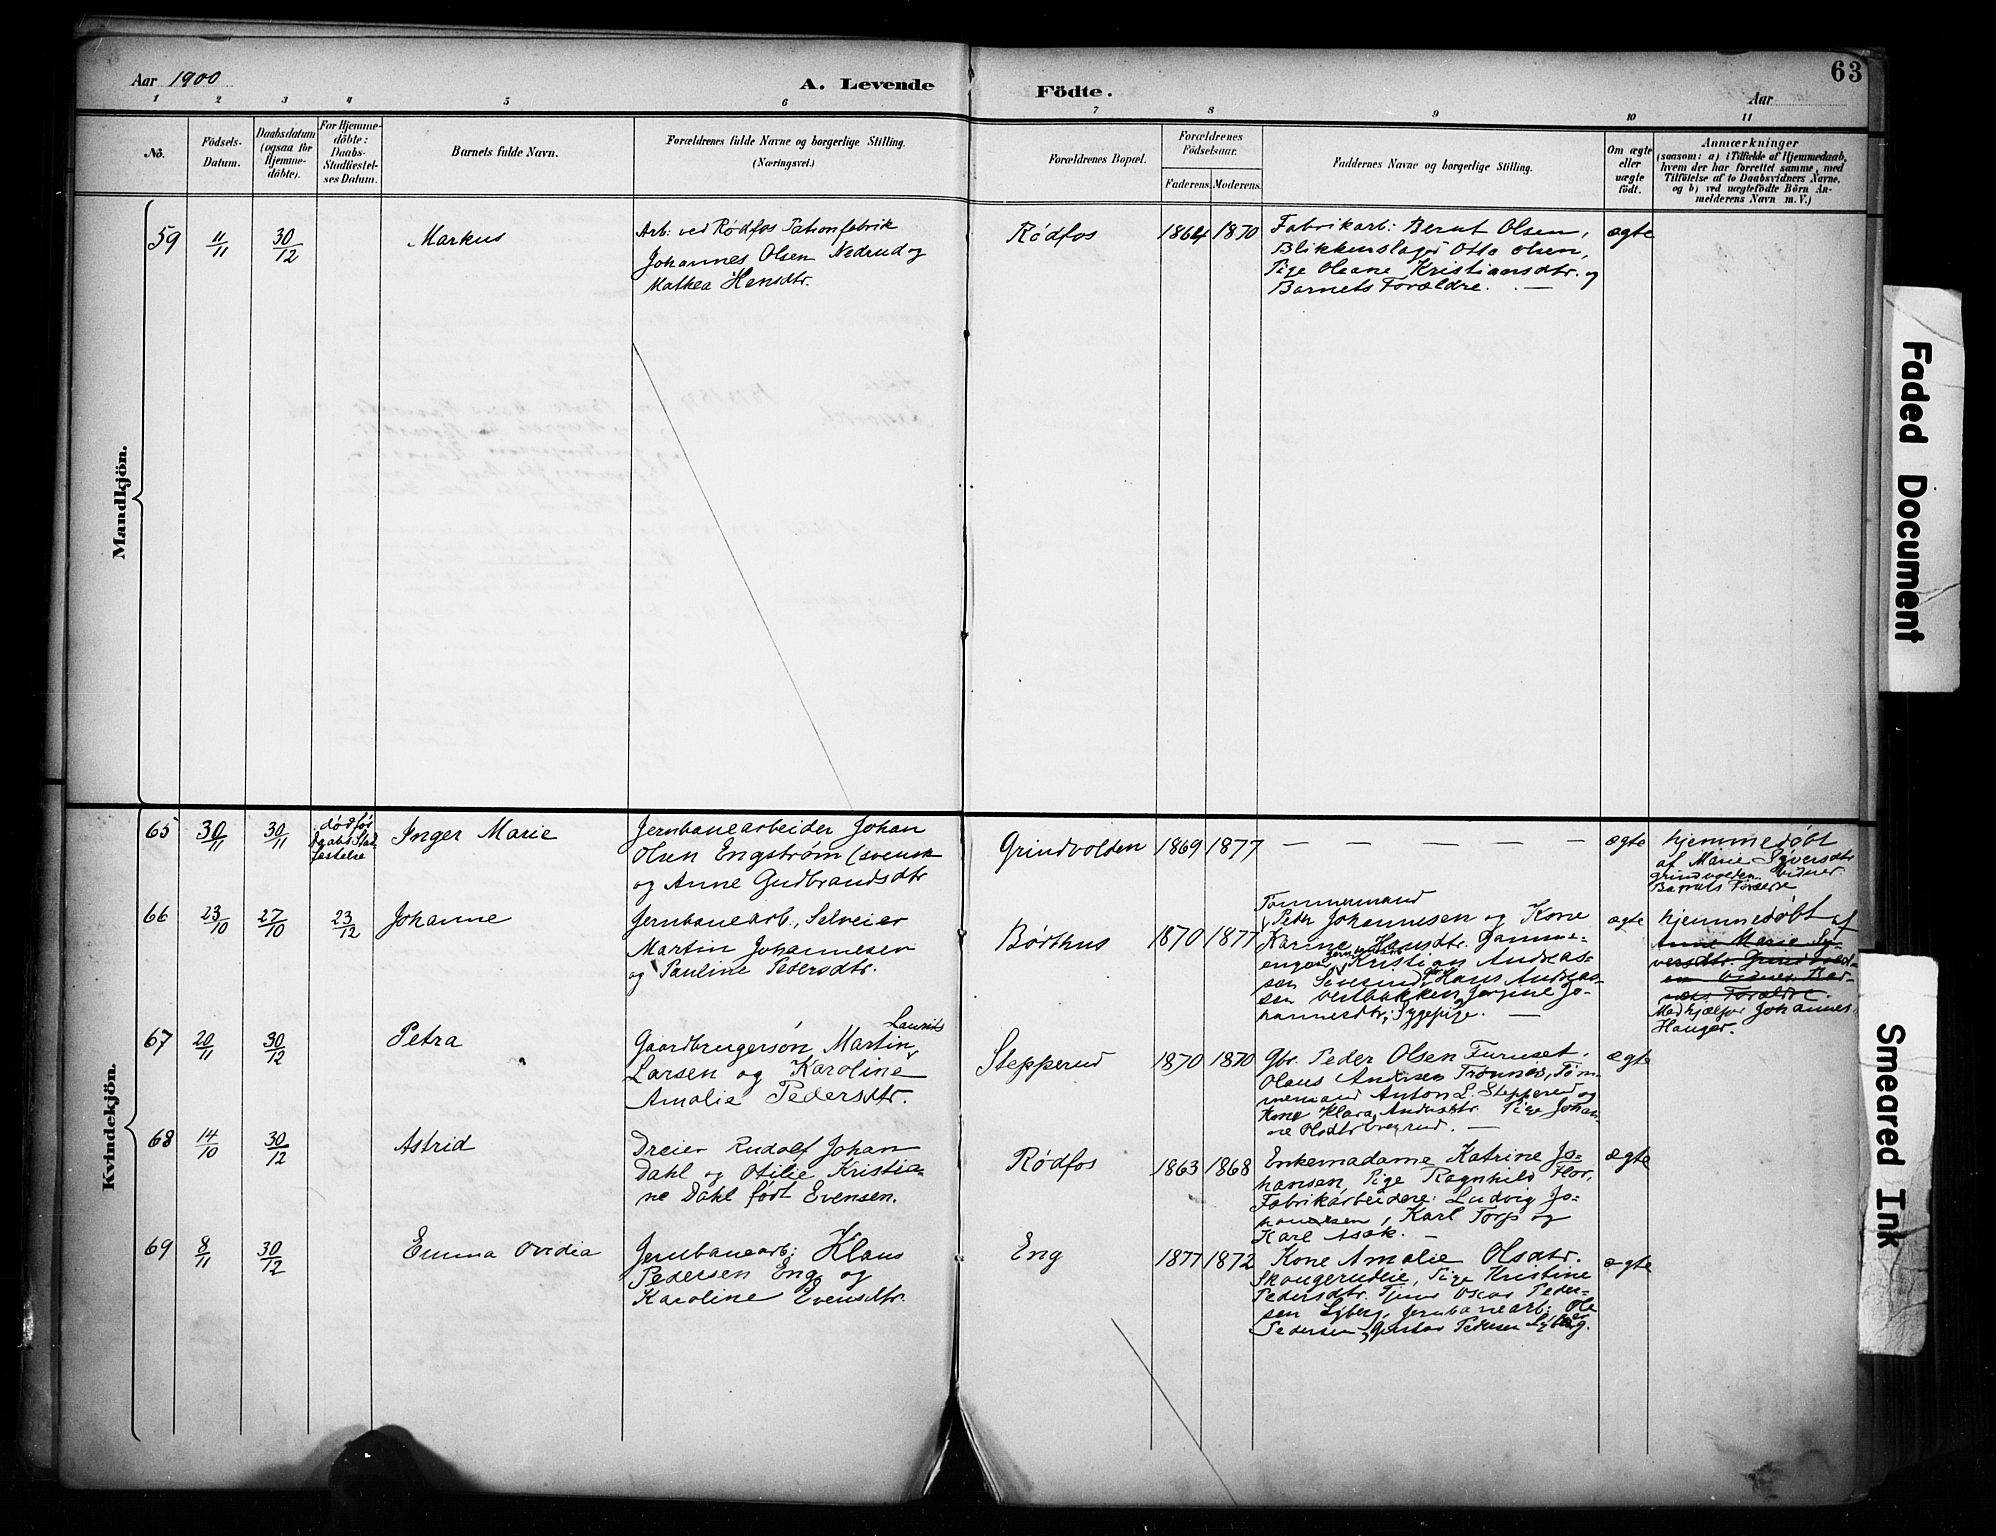 Aar 1900
A. Levende
Födte.
Aar
63
1 2 3 4 5 6 7 8 9 10 11
No.
Födsels-
Datum.
Daabsdatum
(ogsaa for
Hjemme-
döbte).
For Hjemme-
döbte:
Daabs-
Stadfæstel-
ses Datum.
Barnets fulde Navn.
Forældrenes fulde Navne og borgerlige Stilling.
(Næringsvei.)
Forældrenes Bopæl.
Forældrenes
Födselsaar.
Faderens. Moderens.
Faddernes Navne og borgerlige Stilling.
Om ægte
eller
uægte
födt.
Anmærkninger
(saasom: a) i Tilfælde af Hjemmedaab,
hvem der har forrettet samme, med
Tilföielse af to Daabsvidners Navne,
og b) ved uægtefödte Börn An-
melderens Navn m. V.)
Mandkjön.
59
11/11
30/12
Markus
Arb: ved Rødfos Patronfabrik
Johannes Olsen Nedrud og
Mathea Hansdtr.
Rødfos
1864 1870
Fabrikarb: Bernt Olsen,
Blikkenslager Otto Olsen,
Pige Oleane Kristiansdtr. og
Barnets Forældre. —
ægte
Kvindekjön.
65
30/11
30/11
død før
Daabs Stad
festelse
Inger Marie
Jernbanearbeider Johan
Olsen Engstrøm (svensk
og Anne Gudbrandsdtr
Grindvolden
1869 1877
— — — — — —
ægte
hjemmedøbt
af Marie Syversdtr
Grindvolden. Vidner
Barnets Forældre
66
23/10
27/10
23/12
Johanne
Jernbanearb., Selveier
Martin Johannesen
og Pauline Pedersdtr.
Børthus
1870 1877
Tømmermand
Peder Johannesen og Kone
Karine Hansdtr. Gamme-
engen, Kristian Andreas-
sen Hans Andreas-
sen Vestbakken, Jørgine Jo-
hannesdtr, Sygepige. —
ægte
hjemmedøbt af
Anne Marie Sy-
versdtr. Grindvold-
en Vidner Bar-
nets Forældre.
Medhjælper Johannes
Hauger.
67
20/11
30/12
Petra
Laurits
Gaardbrugersøn Martin
Larsen og Karoline
Amalie Pedersdtr.
Stepperud
1870 1870
Gbr. Peder Olsen Furuset.
Olaus Andersen Trønnes, Tøm-
mermand Anton L. Stepperud og
Kone Klara Andersdtr. Pige Johan-
ne Olsdtr —
ægte
68
14/10
30/12
Astrid
Dreier Rudolf Johan
Dahl og Otilie Kristia-
ne Dahl født Evensen.
Rødfos
1863 1868
Enkemadame Katrine Jo-
hansen, Pige Ragnhild Flor,
Fabrikarbeidere: Ludvig Jo-
hansen, Karl Torp og
Karl Asak. —
ægte
69
8/11
30/12
Emma Ovidia
Jernbanearb: Klaus
Pedersen Eng og
Karoline Evensdtr.
Eng
1877 1872
Kone Amalie Olsdtr.
Skougerudeie, Pige Kristine
Pedersdtr. Oscar Peder-
sen Lyberg, Jernbanearb: Ole
Pedersen, Gustav Pedersen Lyberg.
ægte
Faded Document
Smeared Ink